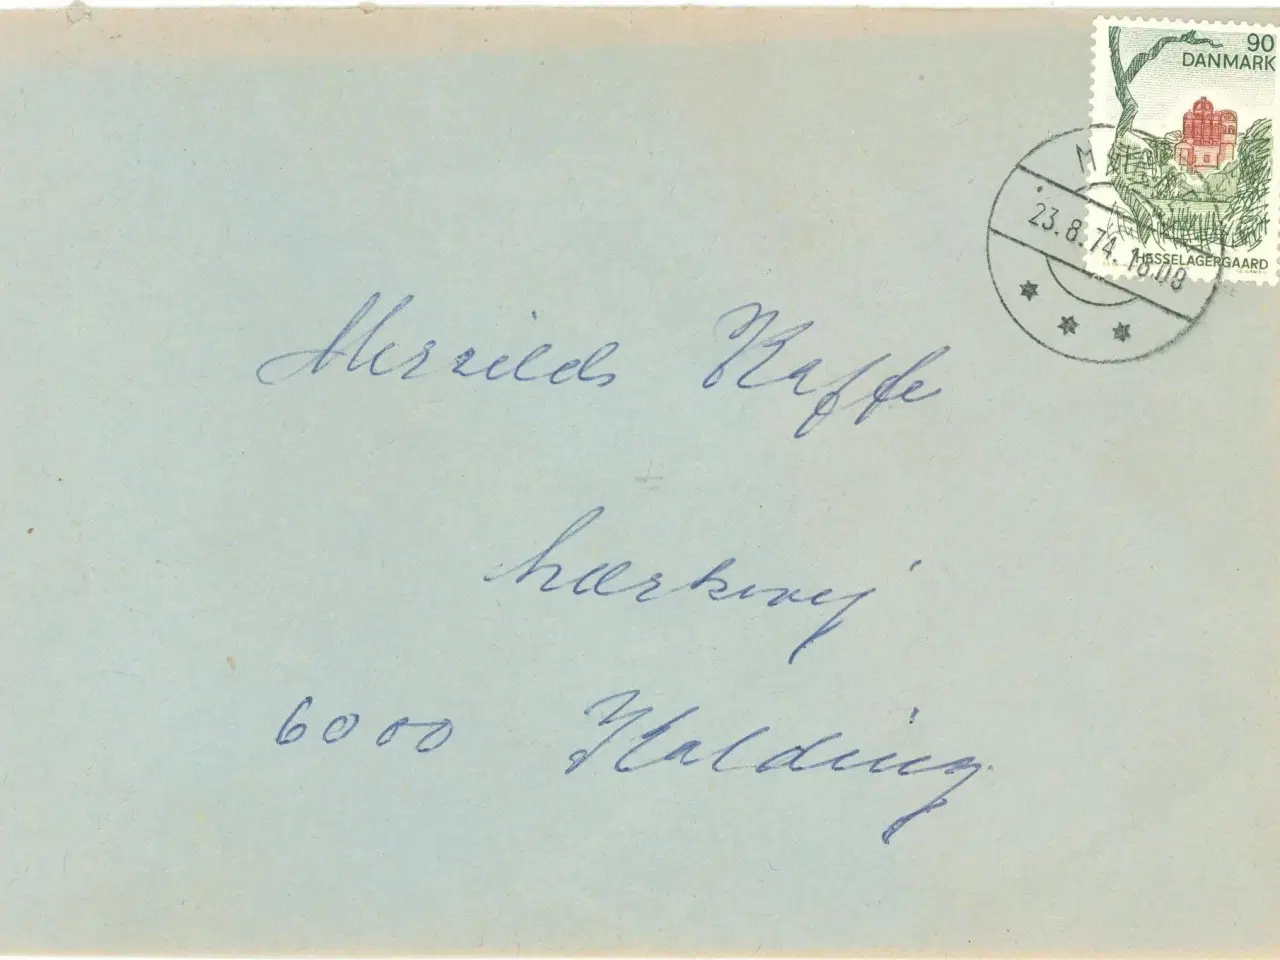 90
DANMARK
HESSELAGERGAARD
23.8.74.16.08
Merrilds Kaffe
Lærkevej
6000 Kolding